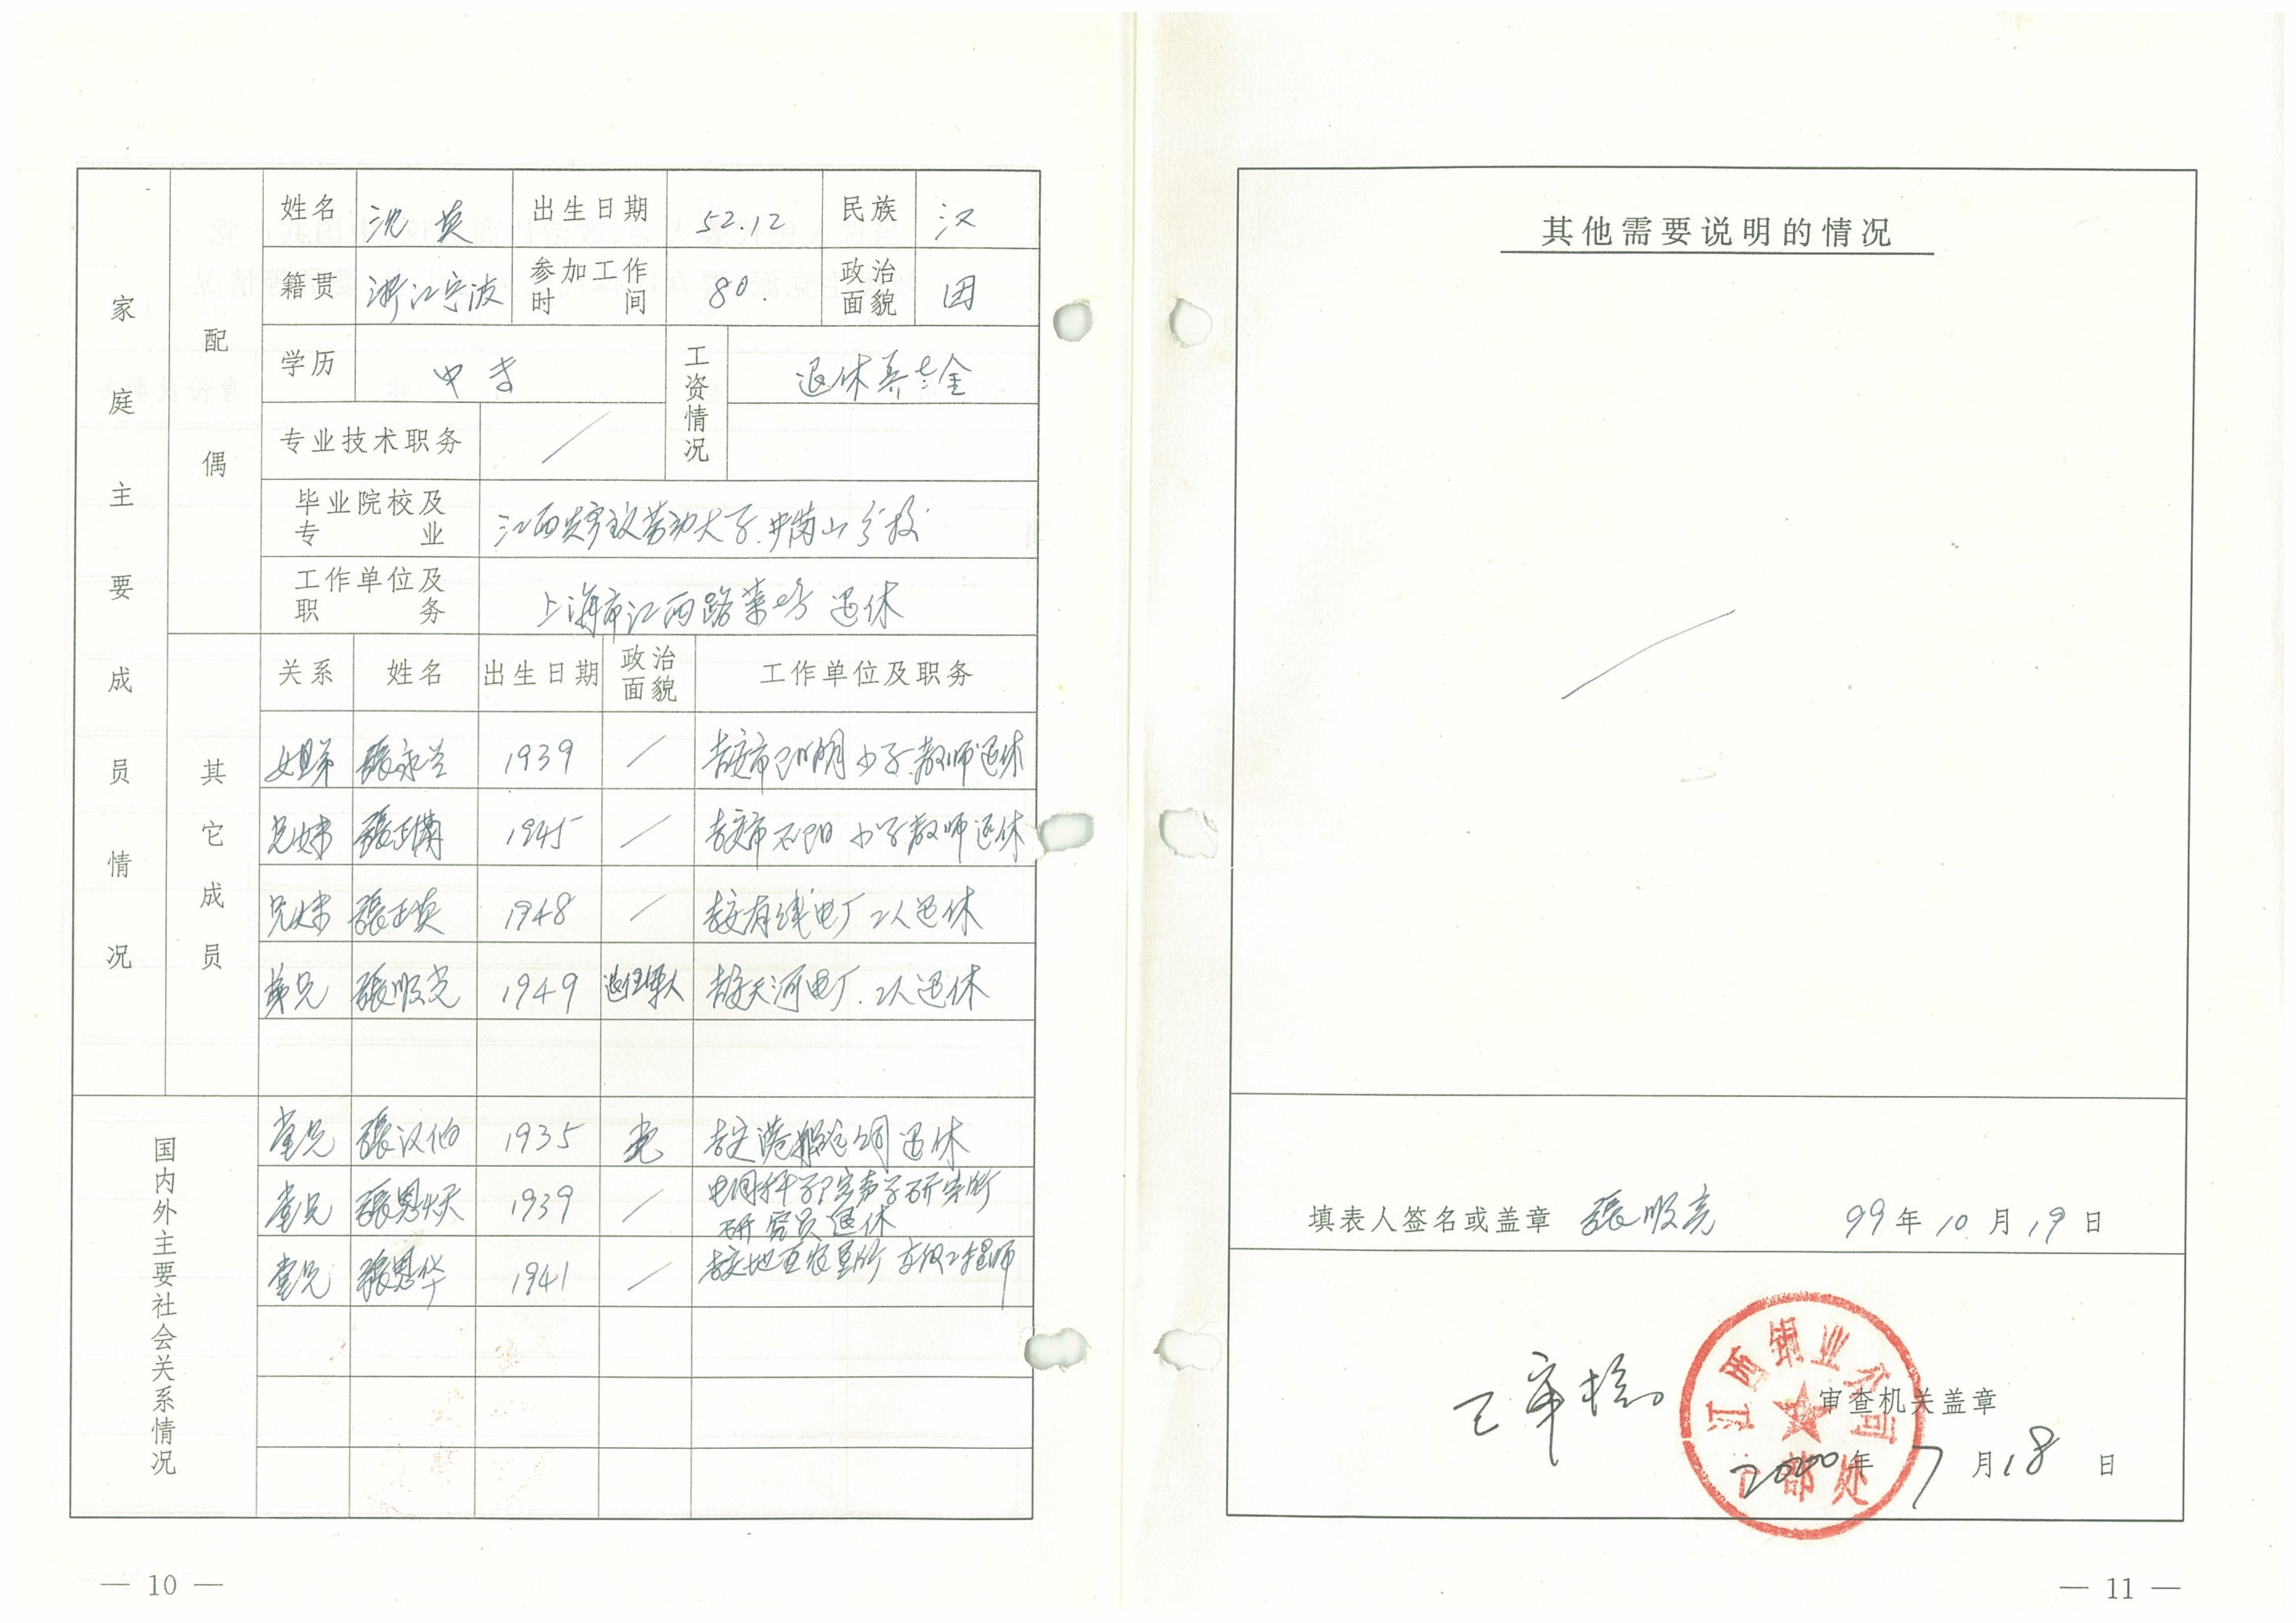 家庭主要成员情况
配偶
姓名 沈英 出生日期 52.12 民族 汉
籍贯 浙江宁波 参加工作时间 80. 政治面貌 团
学历 中专 工资情况 退休养老金
专业技术职务 /
毕业院校及专业 江西共产主义劳动大学.井岗山分校
工作单位及职务 上海市江西路菜场 退休
其它成员
关系 姓名 出生日期 政治面貌 工作单位及职务
姐弟 張永兰 1939 / 吉安市阳明小学教师退休
兄妹 張正 1945 / 吉安市石阳小学教师退休
兄妹 張正英 1948 / 吉安有线电厂工人退休
弟兄 張顺光 1949 退伍軍人 吉安天河电厂.工人退休
国内外主要社会关系情况
堂兄 張汉伯 1935 党 吉安港船运公司退休
堂兄 張恩 1939 / 中国科学院声学研究所
研究员退休
堂兄 張恩华 1941 / 吉安地区农垦所 高级工程师
— 10 —
其他需要说明的情况
/
填表人签名或盖章 張顺亮 99年10月19日
已审核
审查机关盖章
江西铜业公司
干部处
2000年7月18日
— 11 —